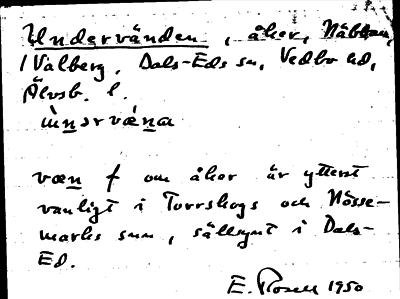 Undervänden, åker, Näbban,
/ Valberg, Dals-Eds sn, Vedbo hd,
Älvsb. l.
ùnərvæ̀na
væn f om åker är ytterst
vanligt i Torrskogs och Nösse-
marks snn, sällsynt i Dals-
Ed.
E. Rosell 1950